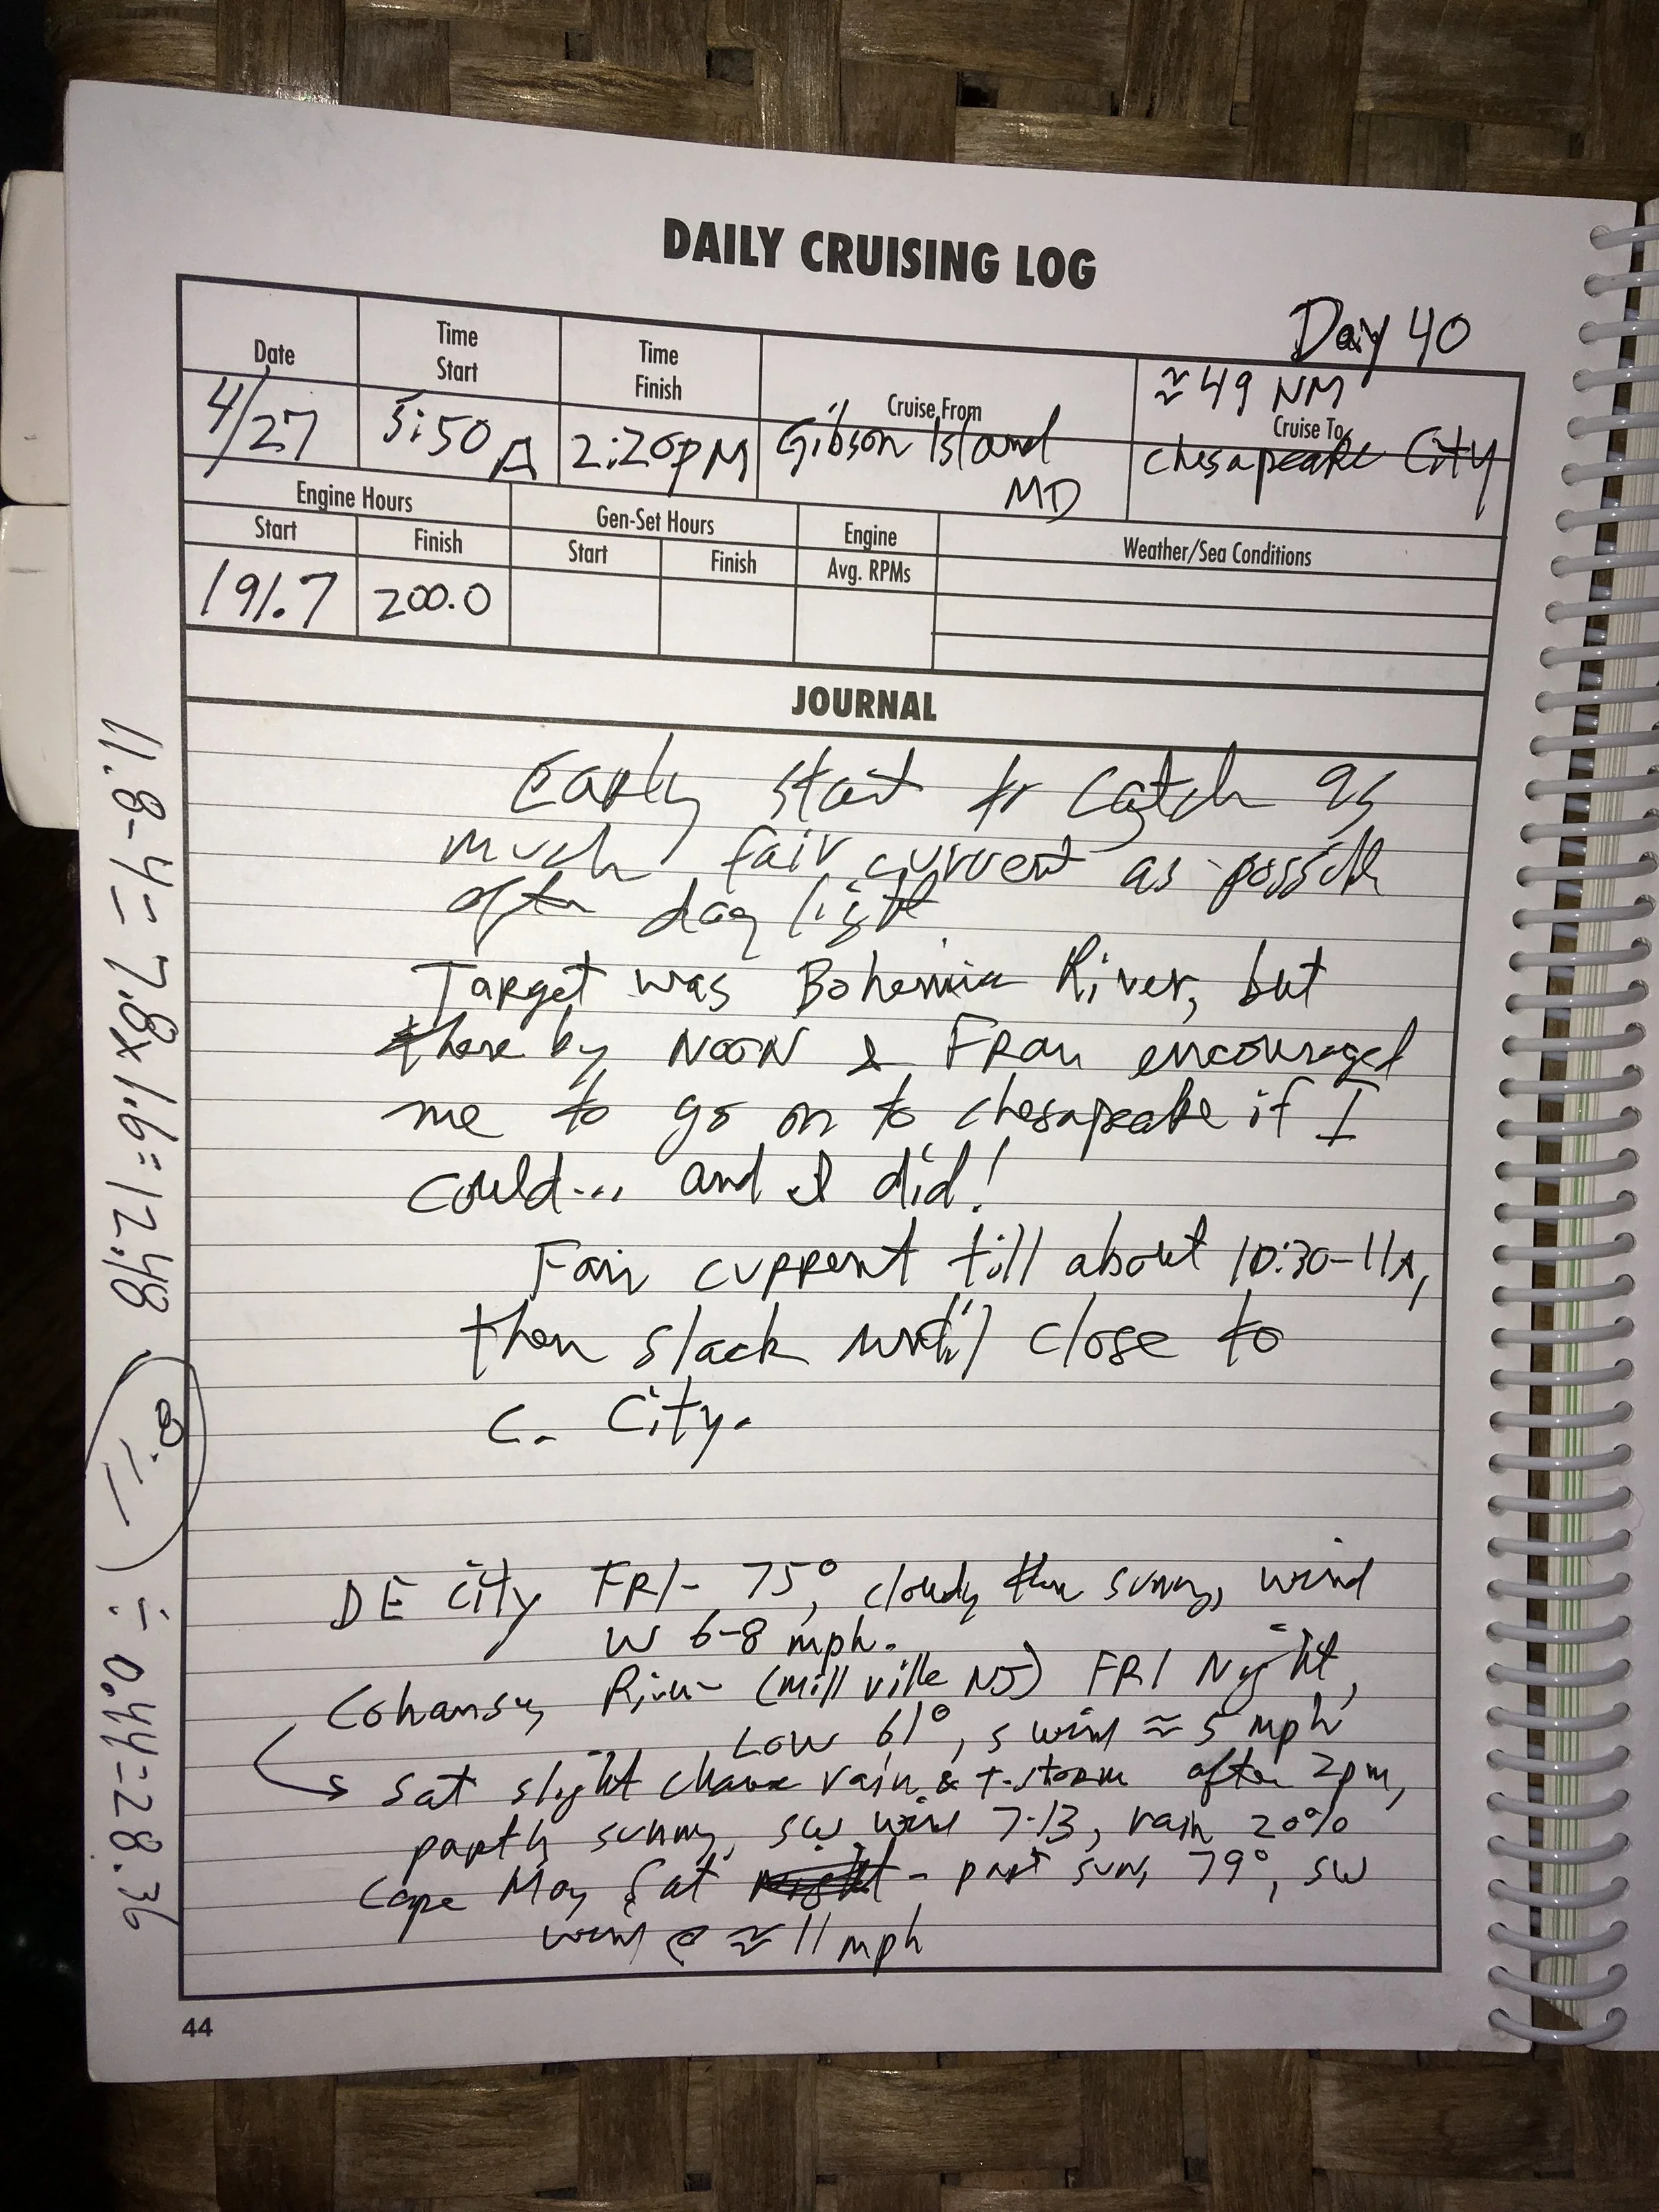 DAILY CRUISING LOG
Day 40
Date
Time Start
Time Finish
Cruise From
≈ 49 NM
Cruise To
4/27
5:50 A
2:20 PM
Gibson Island MD
Chesapeake City
Engine Hours
Gen-Set Hours
Engine
Weather/Sea Conditions
Start
Finish
Start
Finish
Avg. RPMs
191.7
200.0
JOURNAL
Early start to catch as
much fair current as possible
after day light
Target was Bohemia River, but
there by NOON & FRan encouraged
me to go on to chesapeake if I
could... and I did!
Fair current till about 10:30-11A,
then slack until close to
C. City.
DE City FRI- 75°, cloudy then sunny, wind
W 6-8 mph.
Cohansey River (Millville NJ) FRI Night,
Low 61°, S wind ≈ 5 mph
Sat slight chance rain & t-storm after 2pm,
partly sunny, SW wind 7-13, rain 20%
Cape May Sat - part sun, 79°, SW
wind @ ≈ 11 mph
11.8-4 = 7.8x1.6=12.48 ÷ 0.44=28.36
44